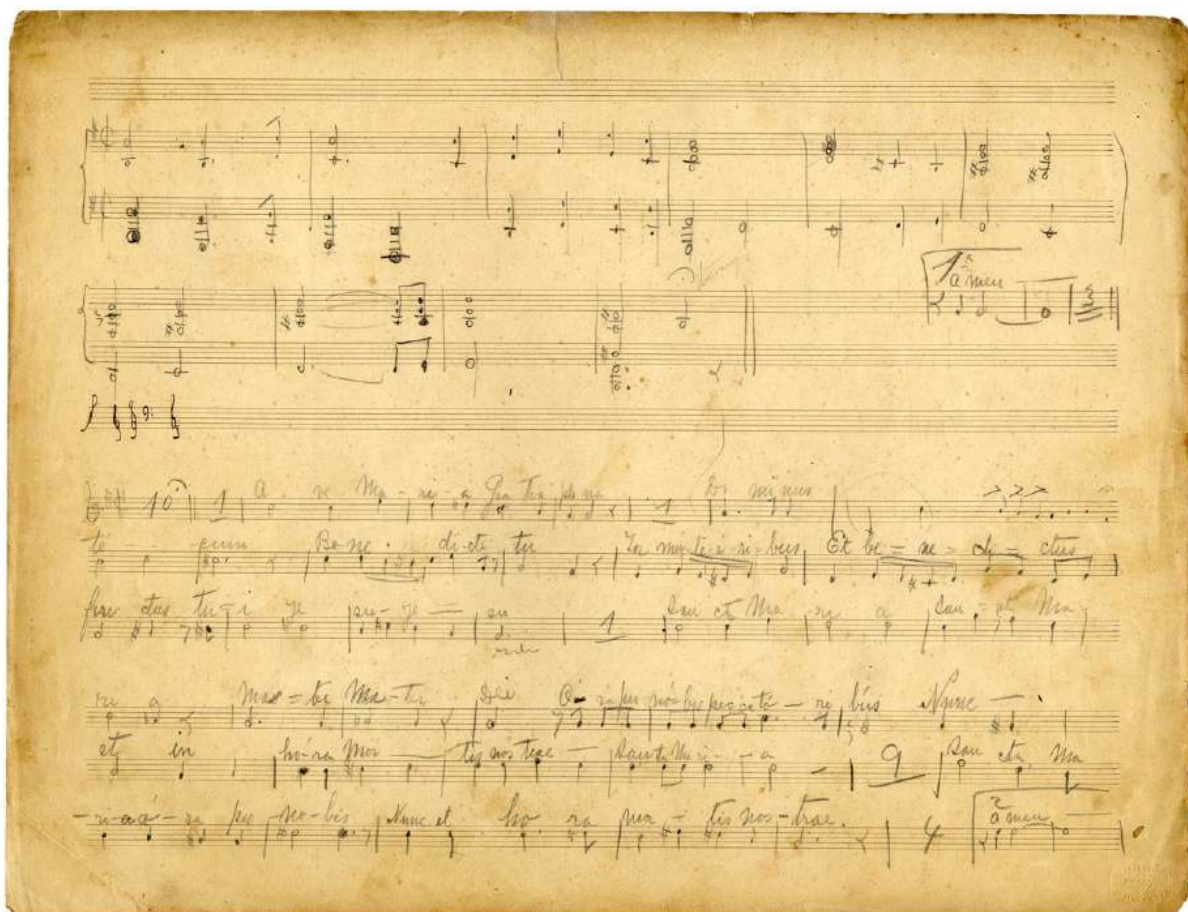 1ª
amen
10 1 A - ve Ma - ri - a Gra tia plena 1 Do minus
te - cum Be - ne - dicta tu In mu - li - e - ri - bus Et be - ne - di - ctus
fruc tus tu - i Je su - Je - su 1 San cta Ma ri a San - cta Ma -
ri a Ma - ter Ma - ter Dei O - ra pro nó - bis peccató - ri bús Nunc
et in hó - ra mor tis nós trae Sancta Ma ri - a 9 San cta Ma
- ri - a ó - ra pro no - bis Nunc et ho ra mor - tis nos - trae. 4 2 amen